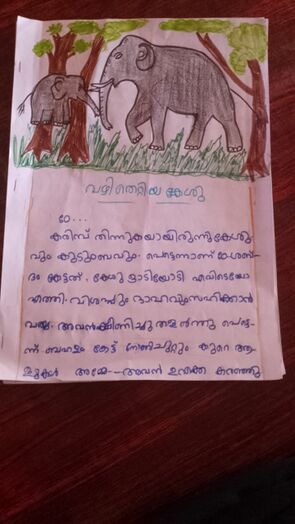 വഴിതെറ്റിയ കേശു
ഠേ...
കരിമ്പ് തിന്നുകയായിരുന്നു കേശു
വും കുടുംബവും. പെട്ടെന്നാണ് ഠേ ശബ്
ദം കേട്ടത്. കേശു ഓടിയോടി എവിടെയോ
എത്തി. വിശപ്പും ദാഹവും സഹിക്കാൻ
വയ്യ. അവൻ ക്ഷീണിച്ചു തളർന്നു പെട്ടെ
ന്ന് ബഹളം കേട്ട് ഞെട്ടി ചുറ്റും കുറെ ആ
ളുകൾ അമ്മേ-- അവൻ ഉറക്കെ കരഞ്ഞു